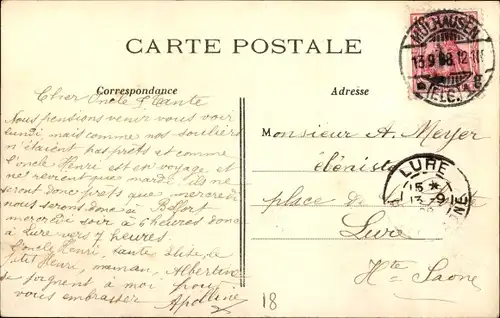 CARTE POSTALE
Correspondance
Cher Oncle & Tante
Nous pensions venir vous voir
lundi mais comme nos souliers
n'étaient pas prêts et comme
l'oncle Henri est en voyage et
ne revient que mardi, ils ne
seront donc prêts que mercredi
nous serons donc à Belfort
mercredi soir à 6 heures donc
à Lure vers 7 heures.
L'oncle Henri, tante Elise, le
petit Henri, maman, Albertine
se joignent à moi pour
vous embrasser Apolline
Adresse
Monsieur A. Meyer
ébéniste
place de
Lure
Hte Saone
MÜLHAUSEN
13.9 08.12-1N
(ELS.) B
LURE
15 *
13 -9
18